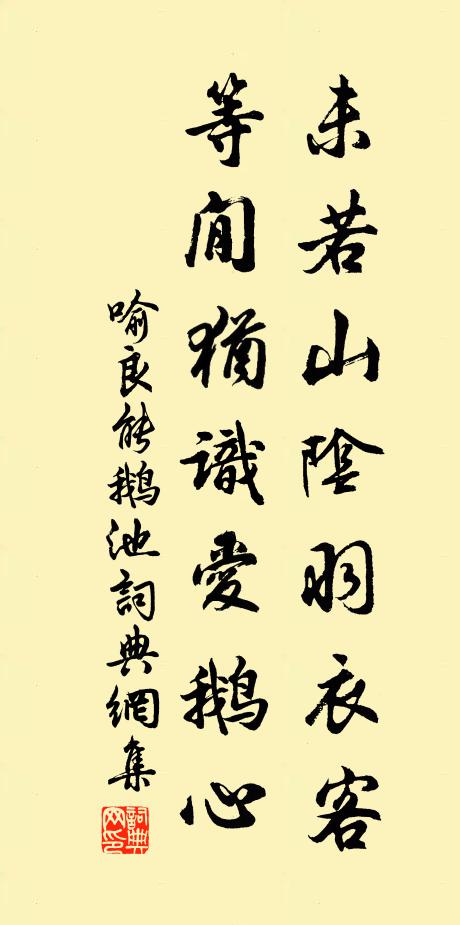 未若山陰羽衣客
等閒猶識愛鵝心
喻良能鵝池詞典網集
詞典網印